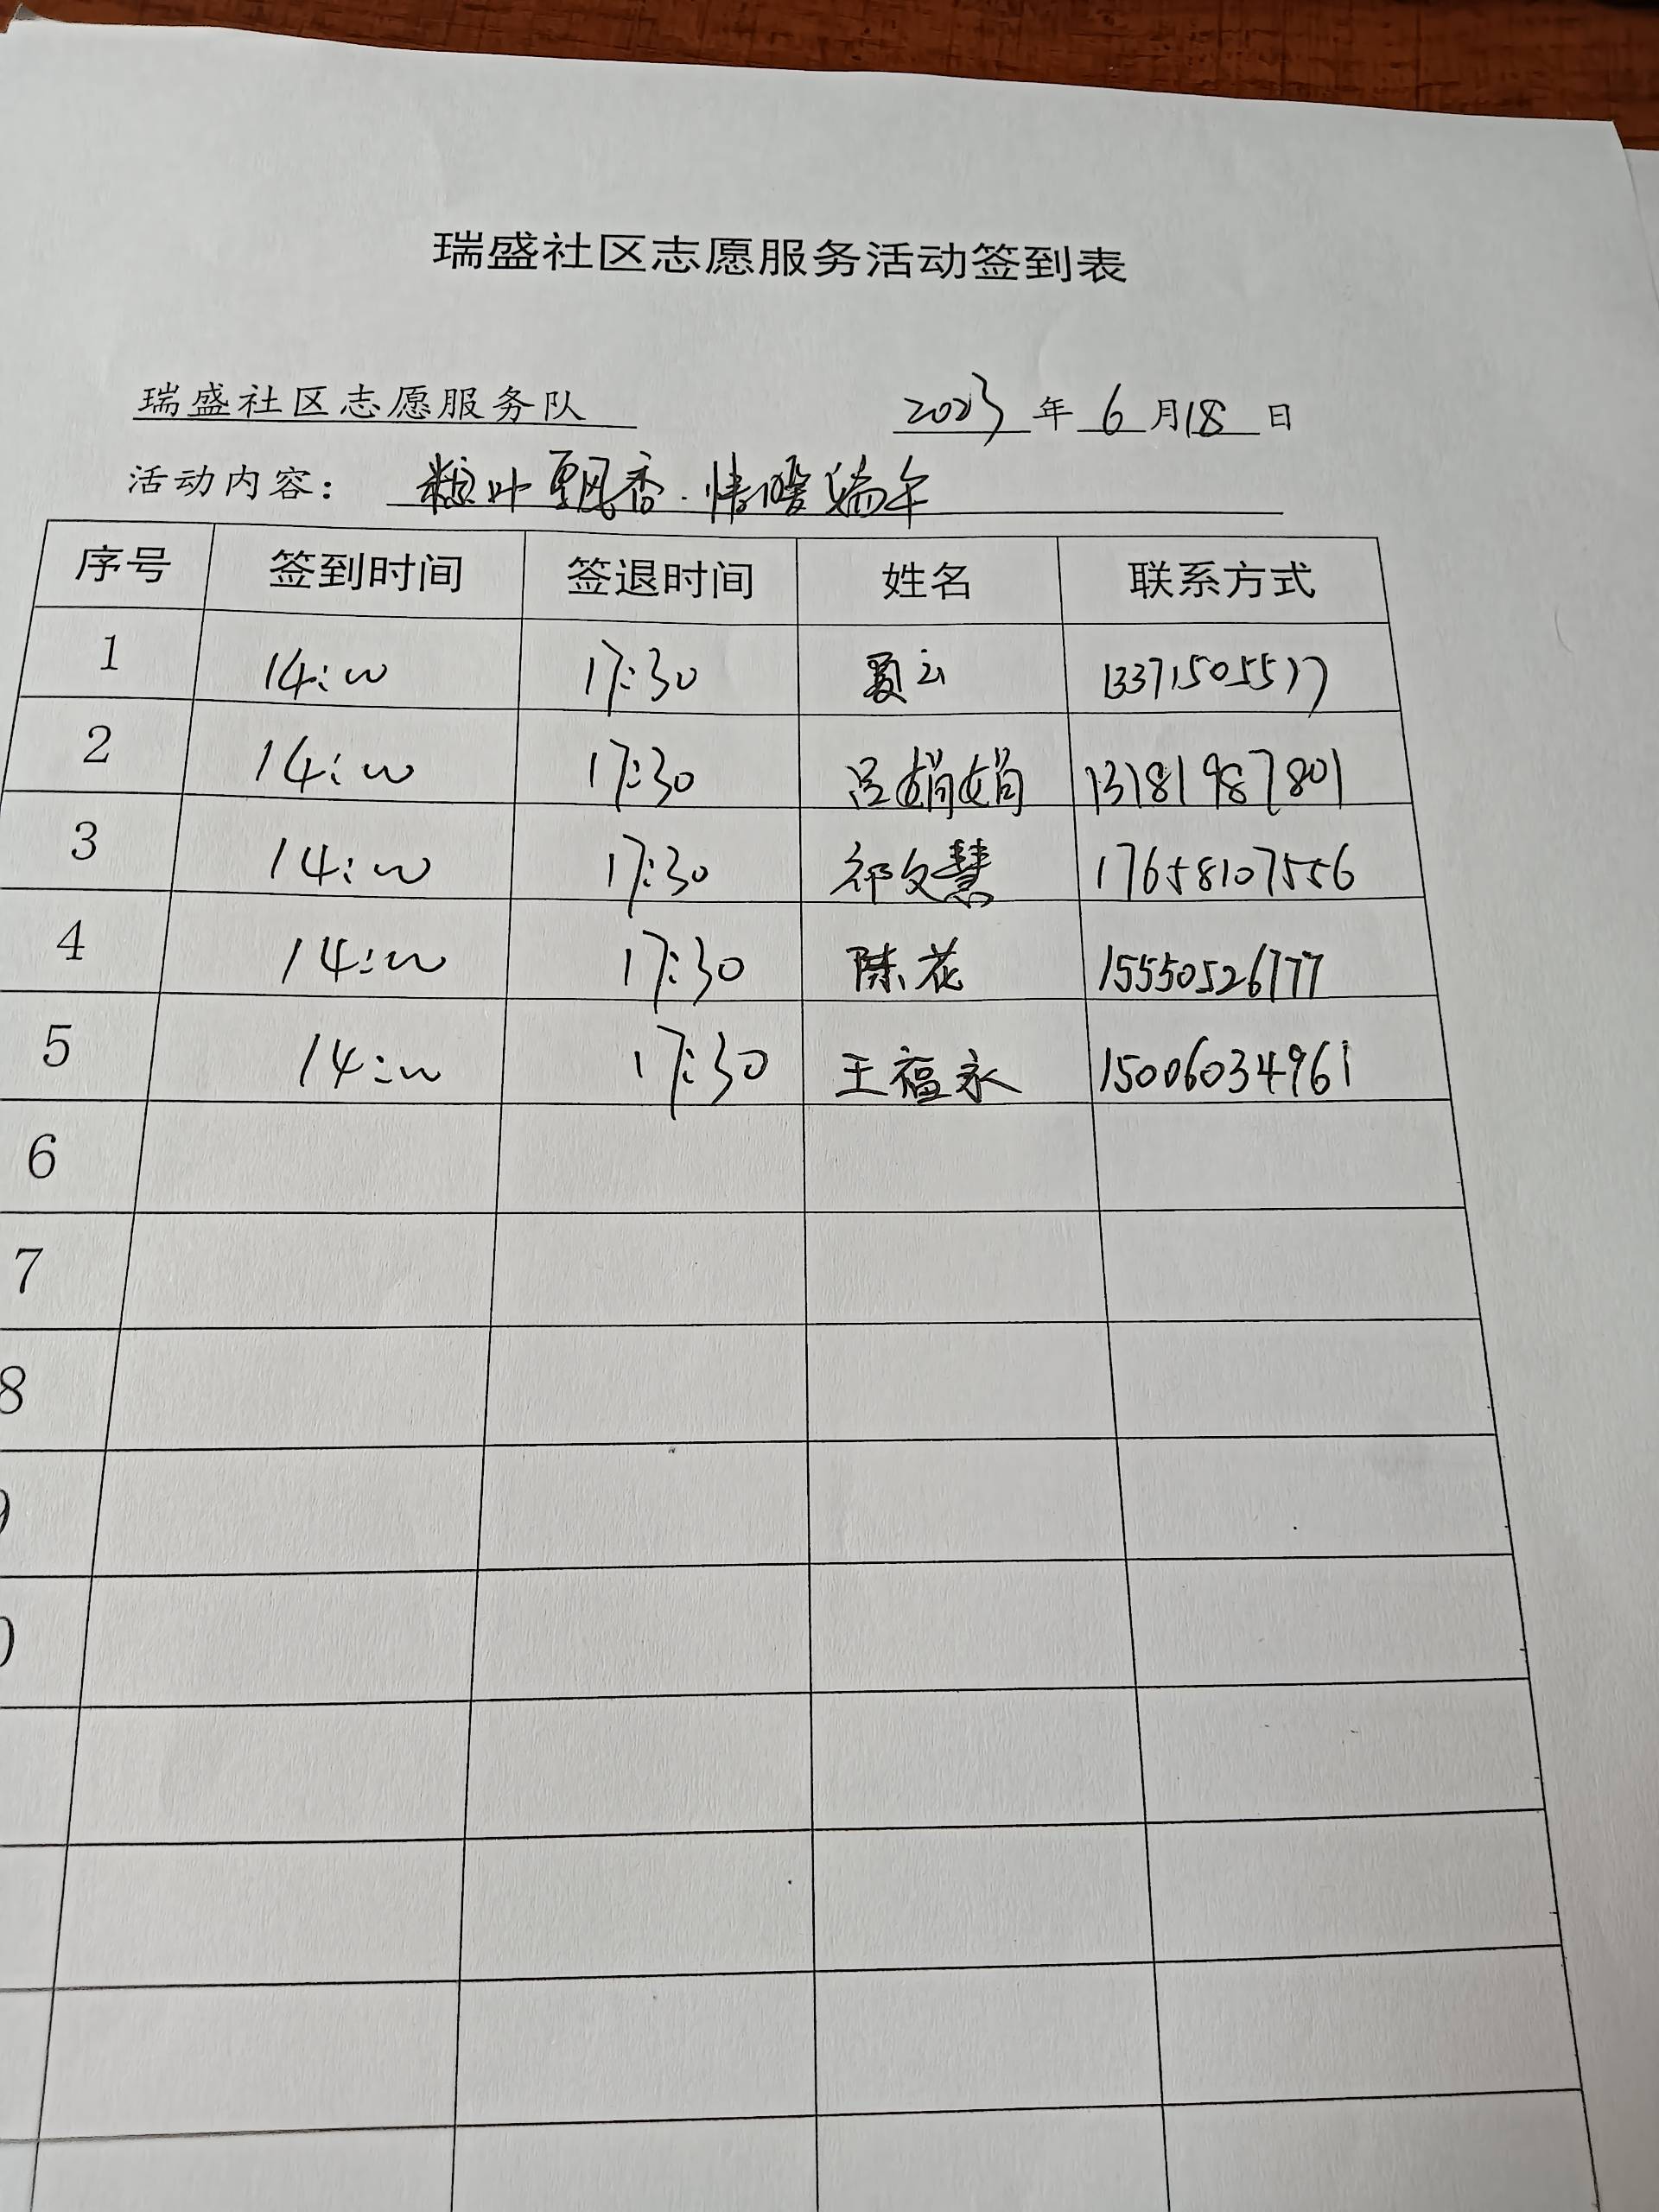 瑞盛社区志愿服务活动签到表
瑞盛社区志愿服务队 2023年6月18日
活动内容：粽叶飘香.情暖端午
序号 签到时间 签退时间 姓名 联系方式
1 14:00 17:30 夏云 13371505517
2 14:00 17:30 吕娟娟 13181987801
3 14:00 17:30 祁文慧 17658107556
4 14:00 17:30 陈花 15550526777
5 14:00 17:30 王福永 15006034961
6
7
8
9
0